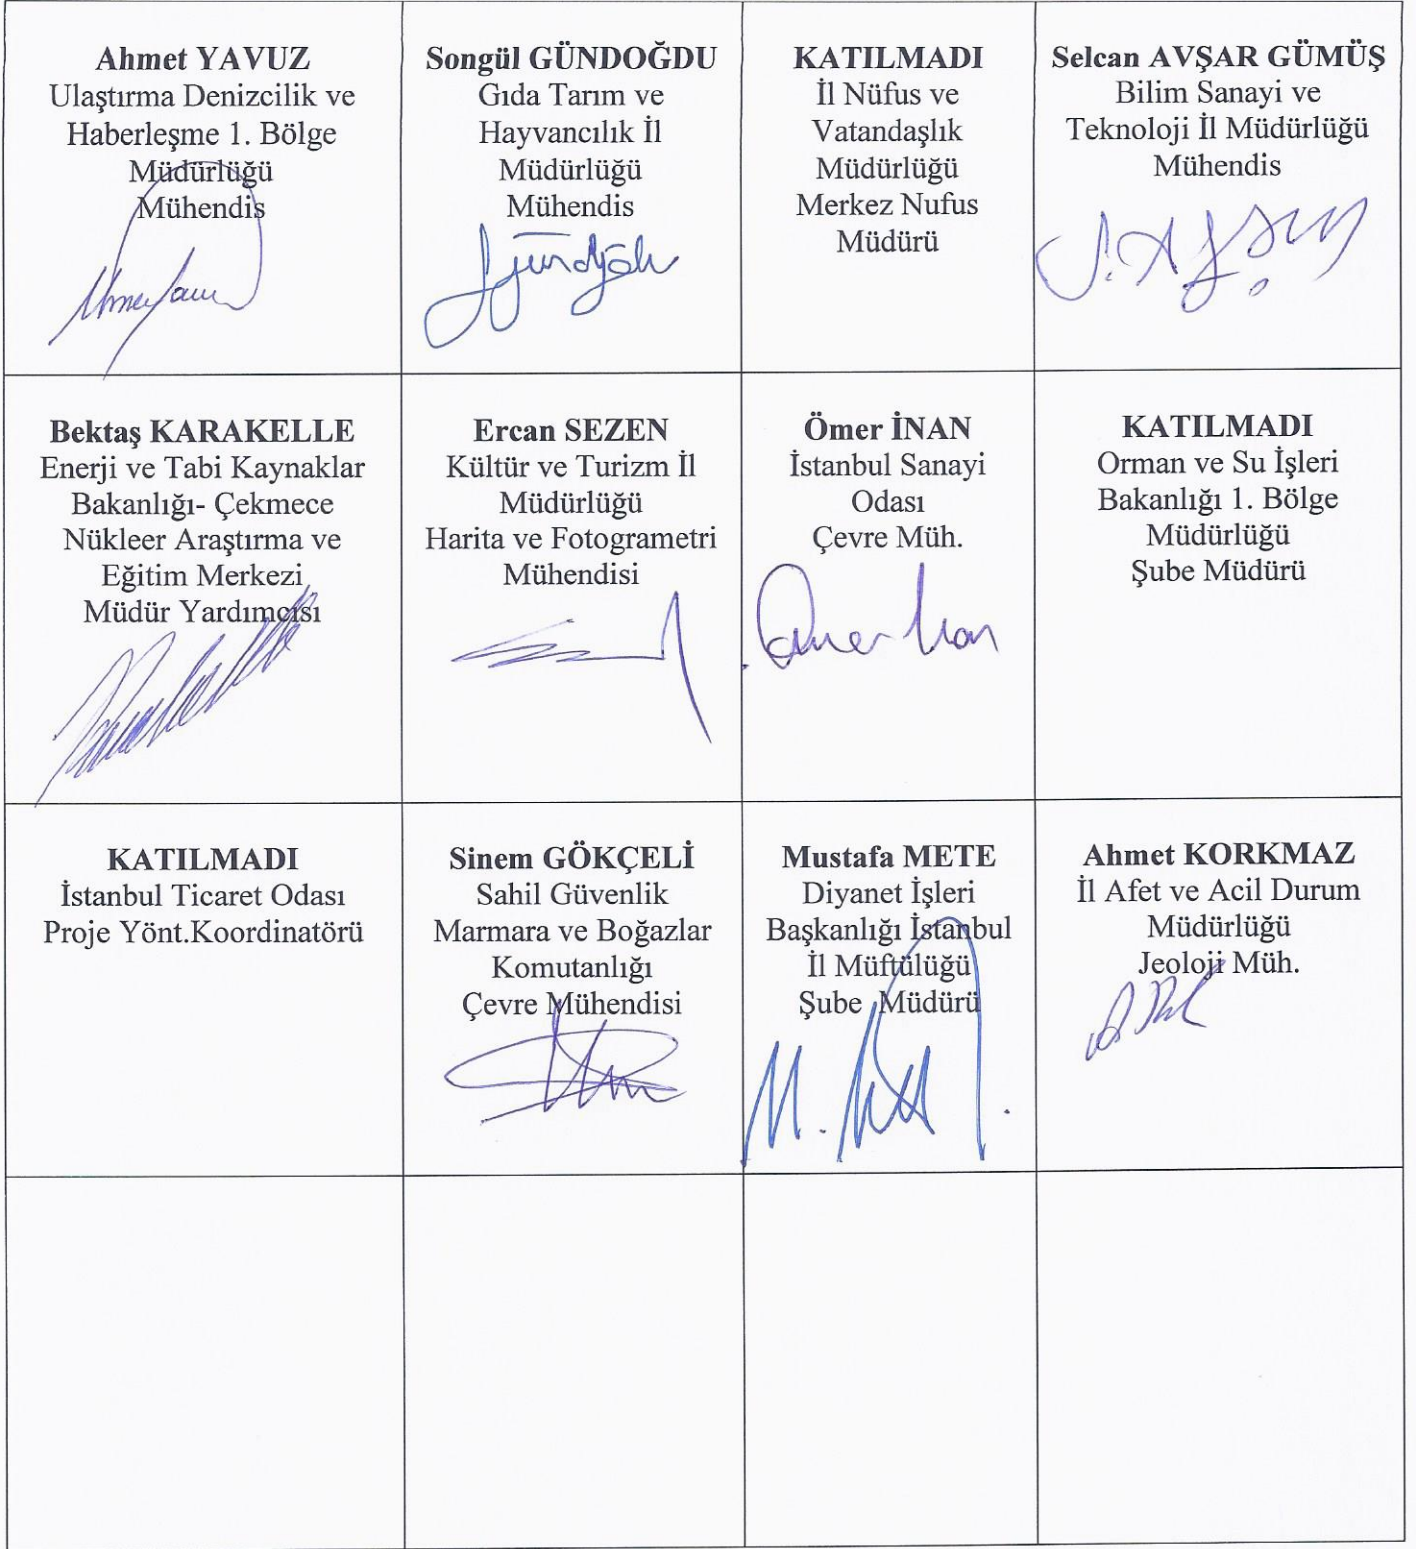 Ahmet YAVUZ
Ulaştırma Denizcilik ve
Haberleşme 1. Bölge
Müdürlüğü
Mühendis
Songül GÜNDOĞDU
Gıda Tarım ve
Hayvancılık İl
Müdürlüğü
Mühendis
KATILMADI
İl Nüfus ve
Vatandaşlık
Müdürlüğü
Merkez Nufus
Müdürü
Selcan AVŞAR GÜMÜŞ
Bilim Sanayi ve
Teknoloji İl Müdürlüğü
Mühendis
Bektaş KARAKELLE
Enerji ve Tabi Kaynaklar
Bakanlığı- Çekmece
Nükleer Araştırma ve
Eğitim Merkezi
Müdür Yardımcısı
Ercan SEZEN
Kültür ve Turizm İl
Müdürlüğü
Harita ve Fotogrametri
Mühendisi
Ömer İNAN
İstanbul Sanayi
Odası
Çevre Müh.
KATILMADI
Orman ve Su İşleri
Bakanlığı 1. Bölge
Müdürlüğü
Şube Müdürü
KATILMADI
İstanbul Ticaret Odası
Proje Yönt.Koordinatörü
Sinem GÖKÇELİ
Sahil Güvenlik
Marmara ve Boğazlar
Komutanlığı
Çevre Mühendisi
Mustafa METE
Diyanet İşleri
Başkanlığı İstanbul
İl Müftülüğü
Şube Müdürü
Ahmet KORKMAZ
İl Afet ve Acil Durum
Müdürlüğü
Jeoloji Müh.